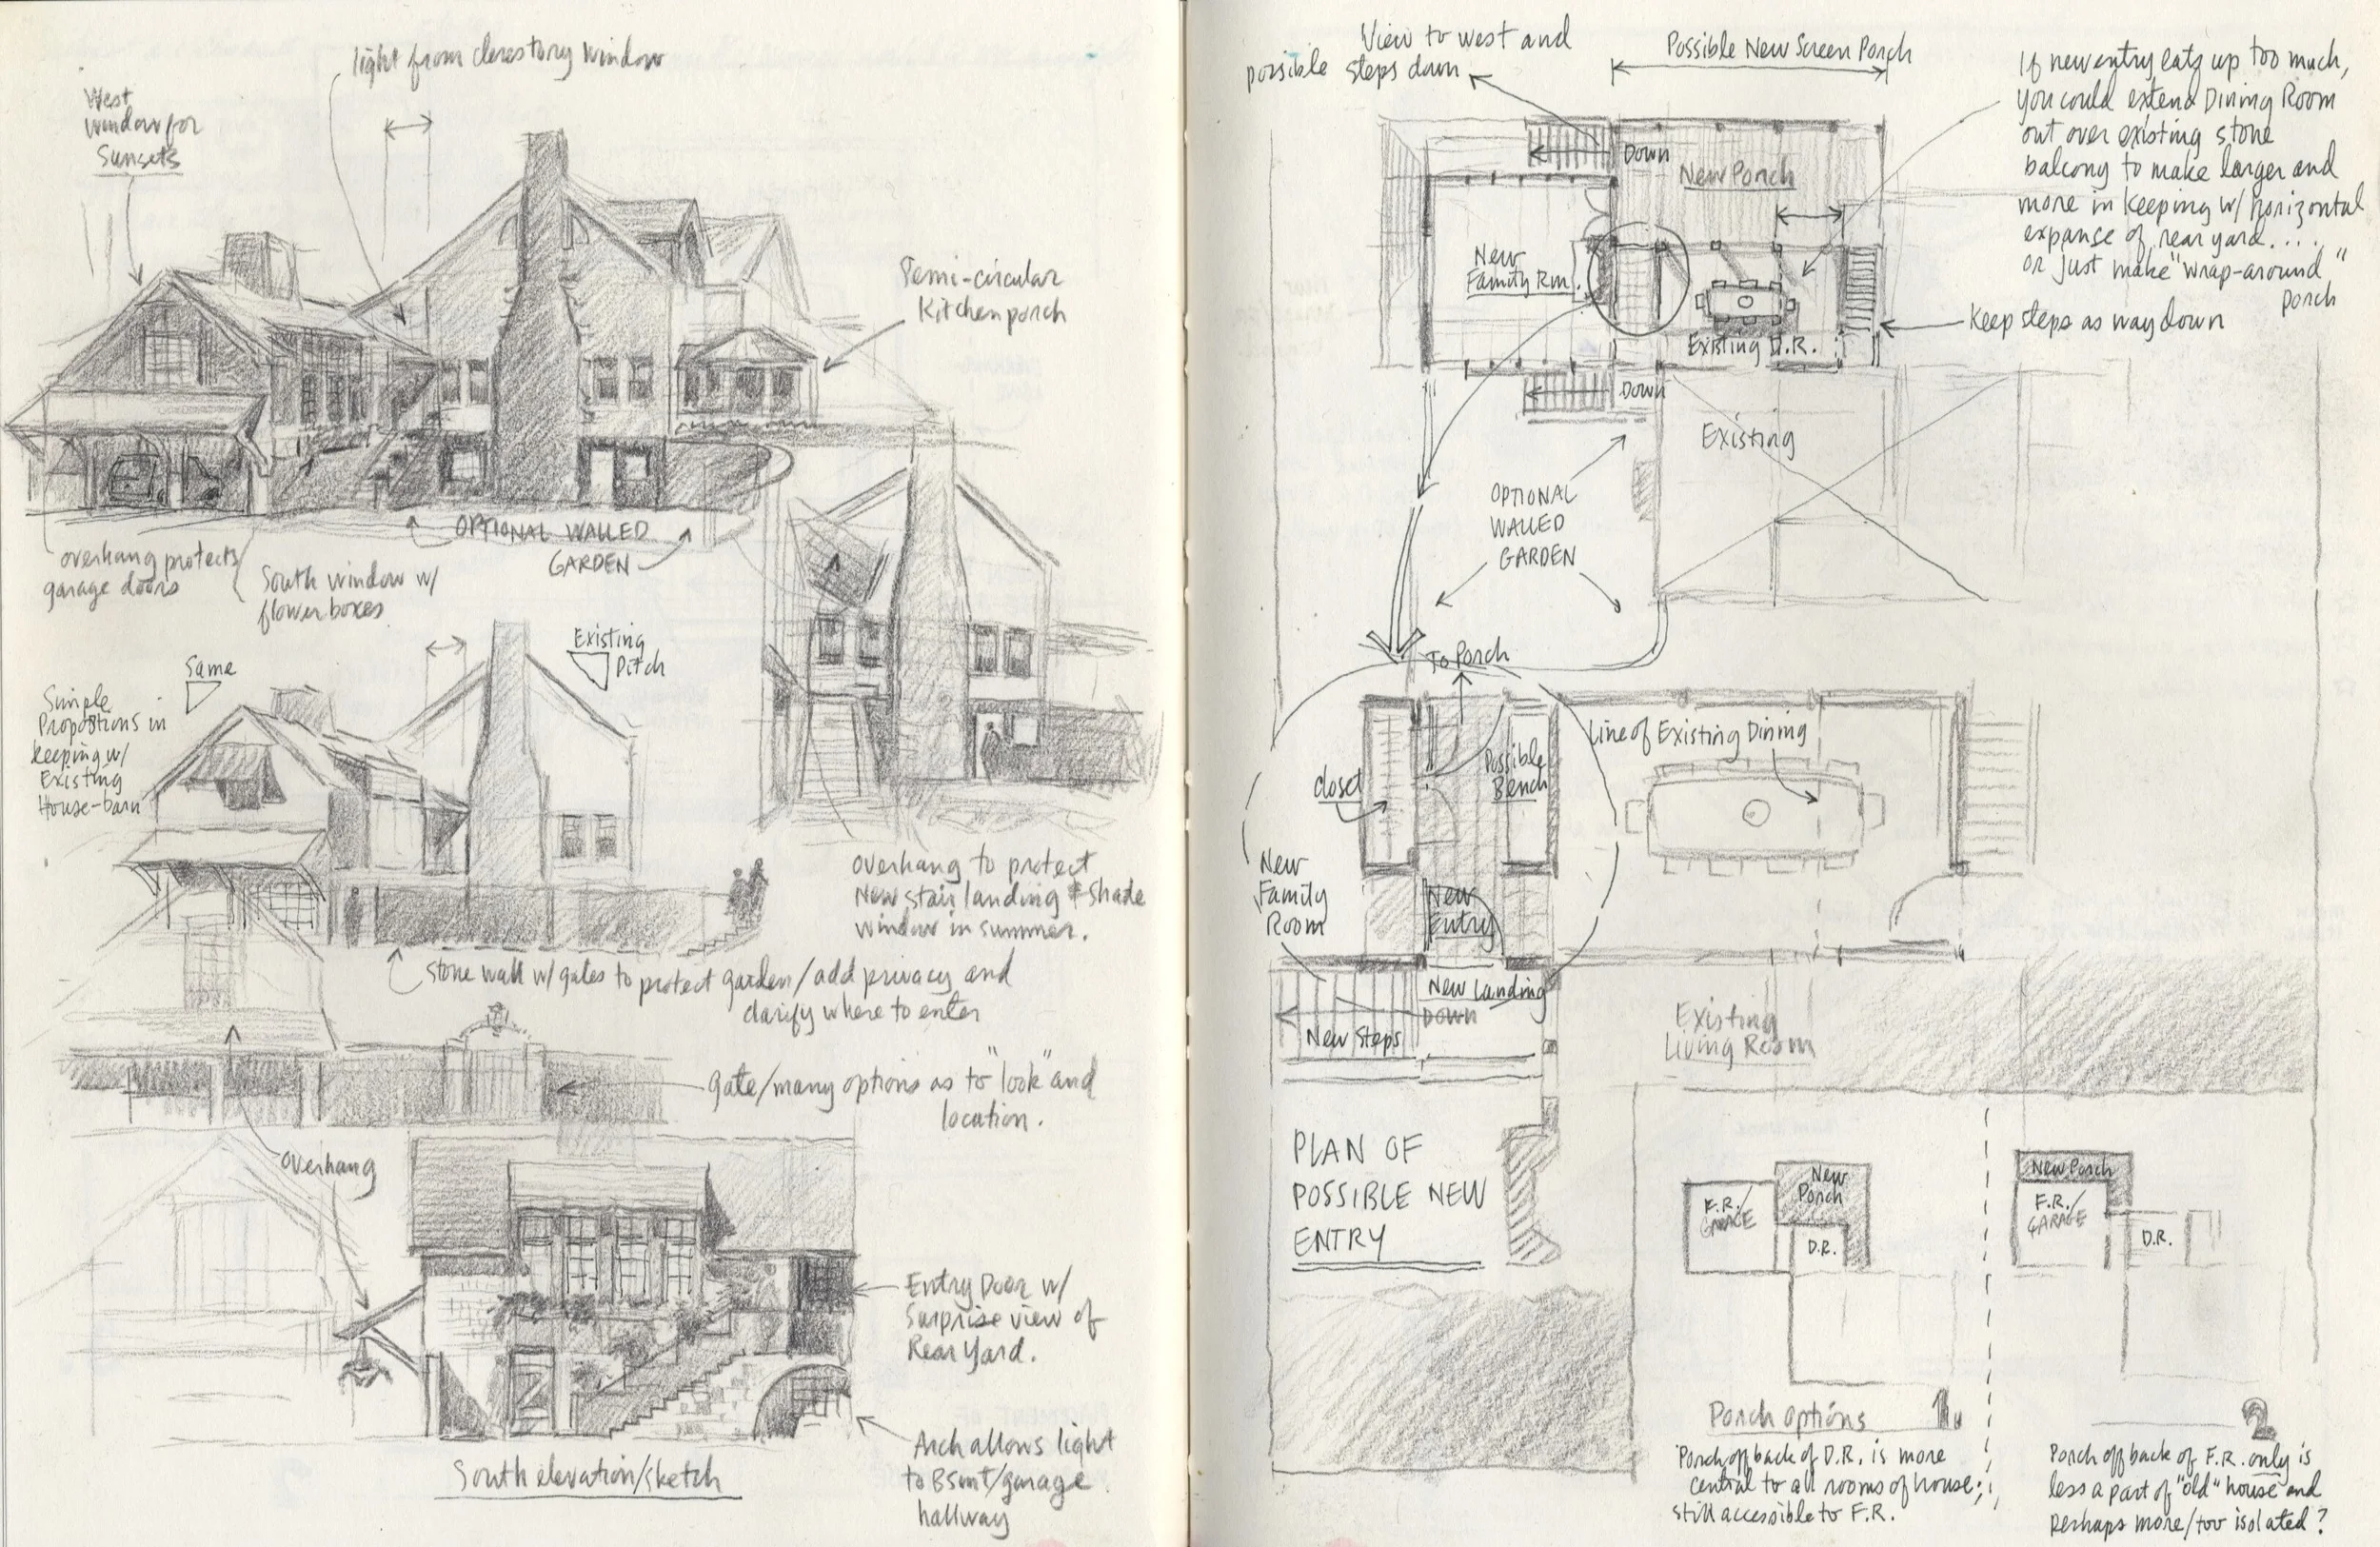 light from clerestory window
West
window for
Sunsets
Semi-circular
Kitchen porch
OPTIONAL WALLED
GARDEN
overhang protects
garage doors
South window w/
flower boxes
Same
Existing
Pitch
Simple
Proportions in
keeping w/
Existing
House-barn
overhang to protect
New stair landing & shade
window in summer.
stone wall w/ gates to protect garden/add privacy and
clarify where to enter
gate/many options as to "look" and
location.
overhang
Entry Door w/
Surprise view of
Rear Yard.
Arch allows light
to Bsmt/garage
hallway
South elevation/sketch
View to west and
possible steps down
Possible New Screen Porch
If new entry eats up too much,
you could extend Dining Room
out over existing stone
balcony to make larger and
more in keeping w/ horizontal
expanse of rear yard....
or just make "wrap-around"
porch
Down
New Porch
New
Family Rm.
Existing D.R.
Keep steps as way down
Down
Existing
OPTIONAL
WALLED
GARDEN
To Porch
closet
Possible
Bench
Line of Existing Dining
New
Family
Room
New
Entry
New Landing
DOWN
New Steps
Existing
Living Room
PLAN OF
POSSIBLE NEW
ENTRY
F.R./
GARAGE
New
Porch
D.R.
New Porch
F.R./
GARAGE
D.R.
Porch options 1.
Porch off back of D.R. is more
central to all rooms of house;
still accessible to F.R.
2
Porch off back of F.R. only is
less a part of "old" house and
perhaps more/too isolated?